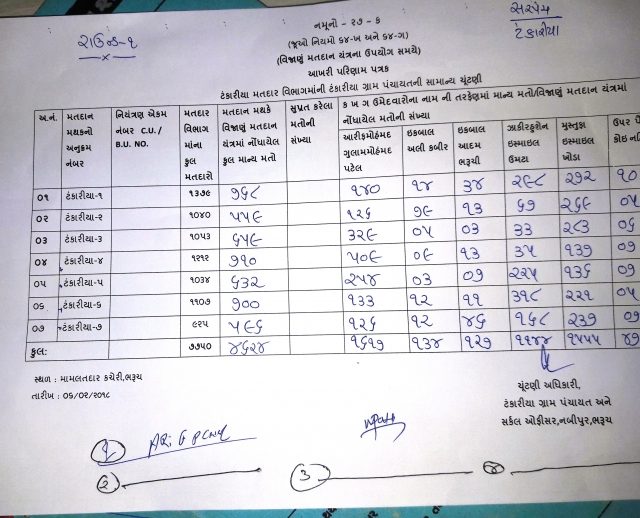 સરપંચ
ટંકારીયા
રાઉન્ડ-૧
નમૂનો - ૨૭ - ક
(જૂઓ નિયમો ૬૪-ખ અને ૬૪-ગ)
(વિજાણું મતદાન યંત્રના ઉપયોગ સમયે)
આખરી પરિણામ પત્રક
ટંકારીયા મતદાર વિભાગમાંની ટંકારીયા ગ્રામ પંચાયતની સામાન્ય ચૂંટણી
અ.નં. મતદાન મથકનો અનુક્રમ નંબર નિયંત્રણ એકમ નંબર C.U. / B.U. NO. મતદાર વિભાગ માંના કુલ મતદારો મતદાન મથકે વિજાણું મતદાન યંત્રમાં નોંધાયેલ કુલ માન્ય મતો સુપ્રત કરેલા મતોની સંખ્યા ક ખ ગ ઉમેદવારોના નામ ની તરફેણમાં માન્ય મતો/વિજાણું મતદાન યંત્રમાં નોંધાયેલ મતોની સંખ્યા
આરીફમોહંમદ ગુલામમોહંમદ પટેલ ઇકબાલ અલી કબીર ઇકબાલ આદમ ભરૂચી ઝાકીરહુશેન ઇસ્માઇલ ઉમટા મુસ્તુફા ઇસ્માઇલ ખોડા
૦૧ ટંકારીયા-૧ ૧૩૭૯ ૭૬૮ ૧૪૦ ૧૪ ૩૪ ૨૯૮ ૨૭૨ ૧૦
૦૨ ટંકારીયા-૨ ૧૦૪૦ ૫૫૯ ૧૨૬ ૭૯ ૧૩ ૬૭ ૨૬૯ ૦૫
૦૩ ટંકારીયા-૩ ૧૦૫૩ ૬૫૯ ૩૨૯ ૦૫ ૦૩ ૩૩ ૨૮૩ ૦૬
૦૪ ટંકારીયા-૪ ૧૨૧૨ ૭૧૦ ૫૦૯ ૦૯ ૧૩ ૩૫ ૧૩૭ ૦૭
૦૫ ટંકારીયા-૫ ૧૦૩૪ ૬૩૨ ૨૫૪ ૦૩ ૦૭ ૨૨૫ ૧૩૬ ૦૭
૦૬ ટંકારીયા-૬ ૧૧૦૭ ૭૦૦ ૧૩૩ ૧૨ ૧૧ ૩૧૮ ૨૨૧ ૦૫
૦૭ ટંકારીયા-૭ ૯૨૫ ૫૯૬ ૧૨૬ ૧૨ ૪૬ ૧૬૮ ૨૩૭
કુલ: ૭૭૫૦ ૪૬૨૪ ૧૬૧૭ ૧૩૪ ૧૨૭ ૧૧૪૪ ૧૫૫૫
સ્થળ : મામલતદાર કચેરી,ભરૂચ
તારીખ : ૦૬/૦૨/૨૦૧૮
ચૂંટણી અધિકારી,
ટંકારીયા ગ્રામ પંચાયત અને
સર્કલ ઓફીસર,નબીપુર,ભરૂચ
૧
૨ ૩ ૪